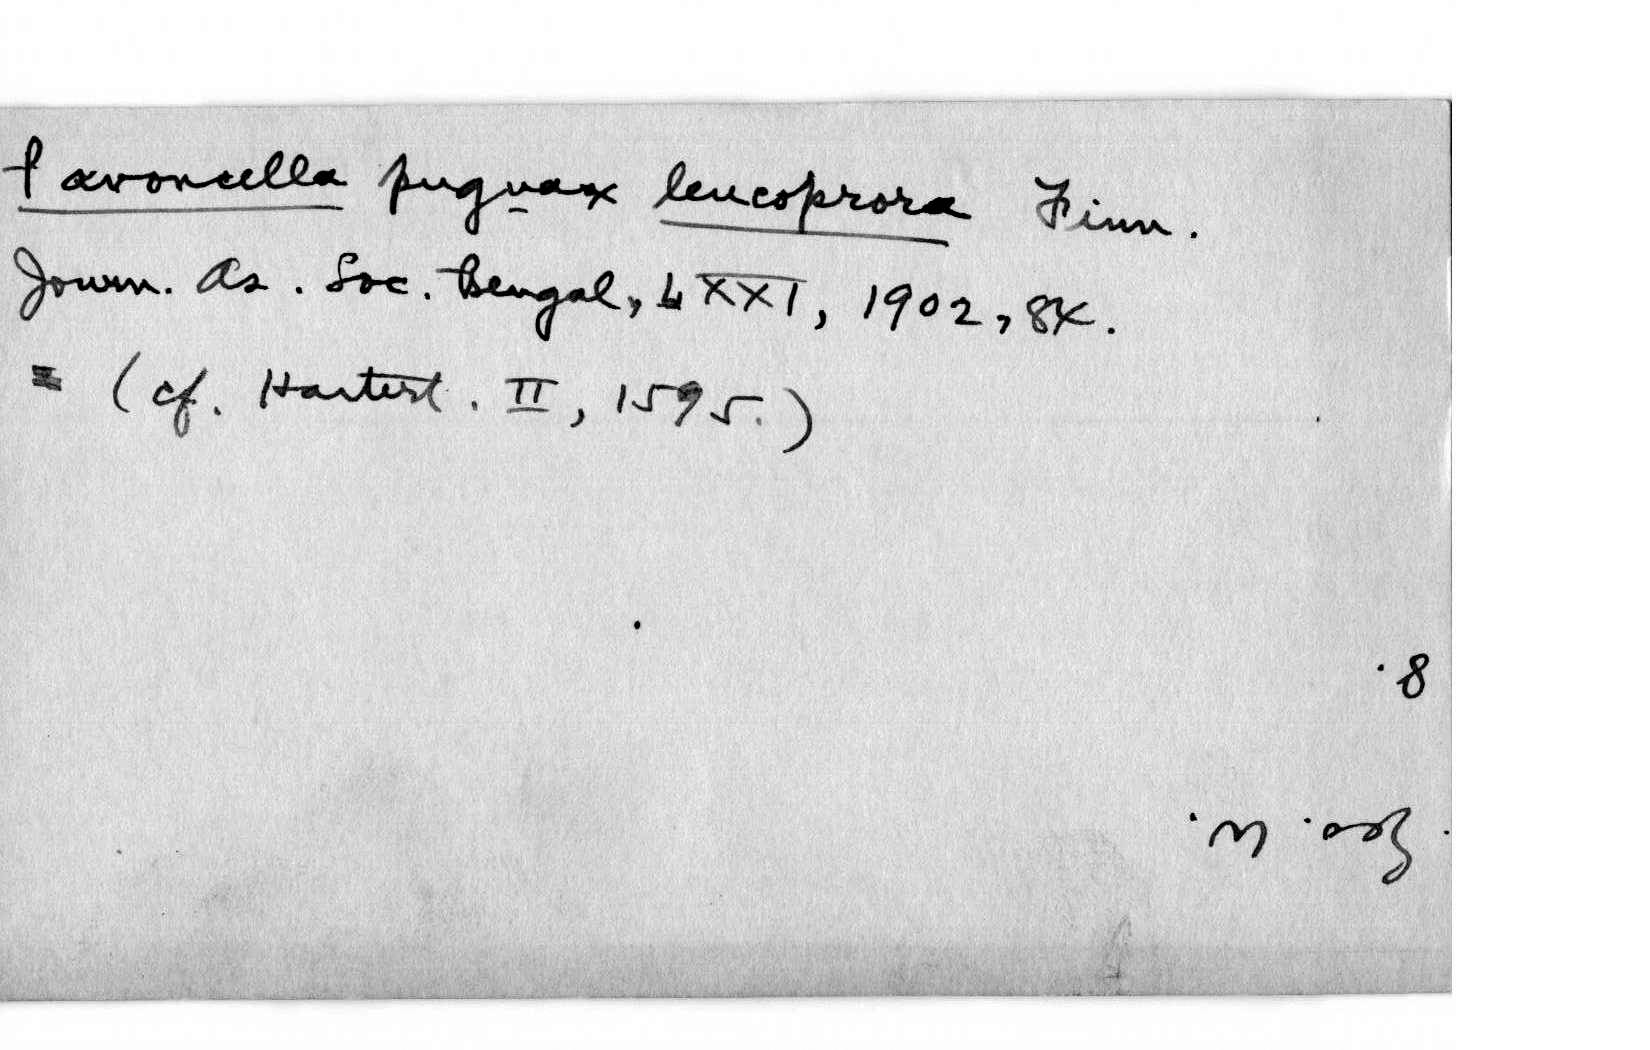 Pavoncella pugnax leucoprora Finn.
Journ. As. Soc. Bengal, LXXI, 1902, 84.
= (cf. Hartert. II, 1595.)
8.